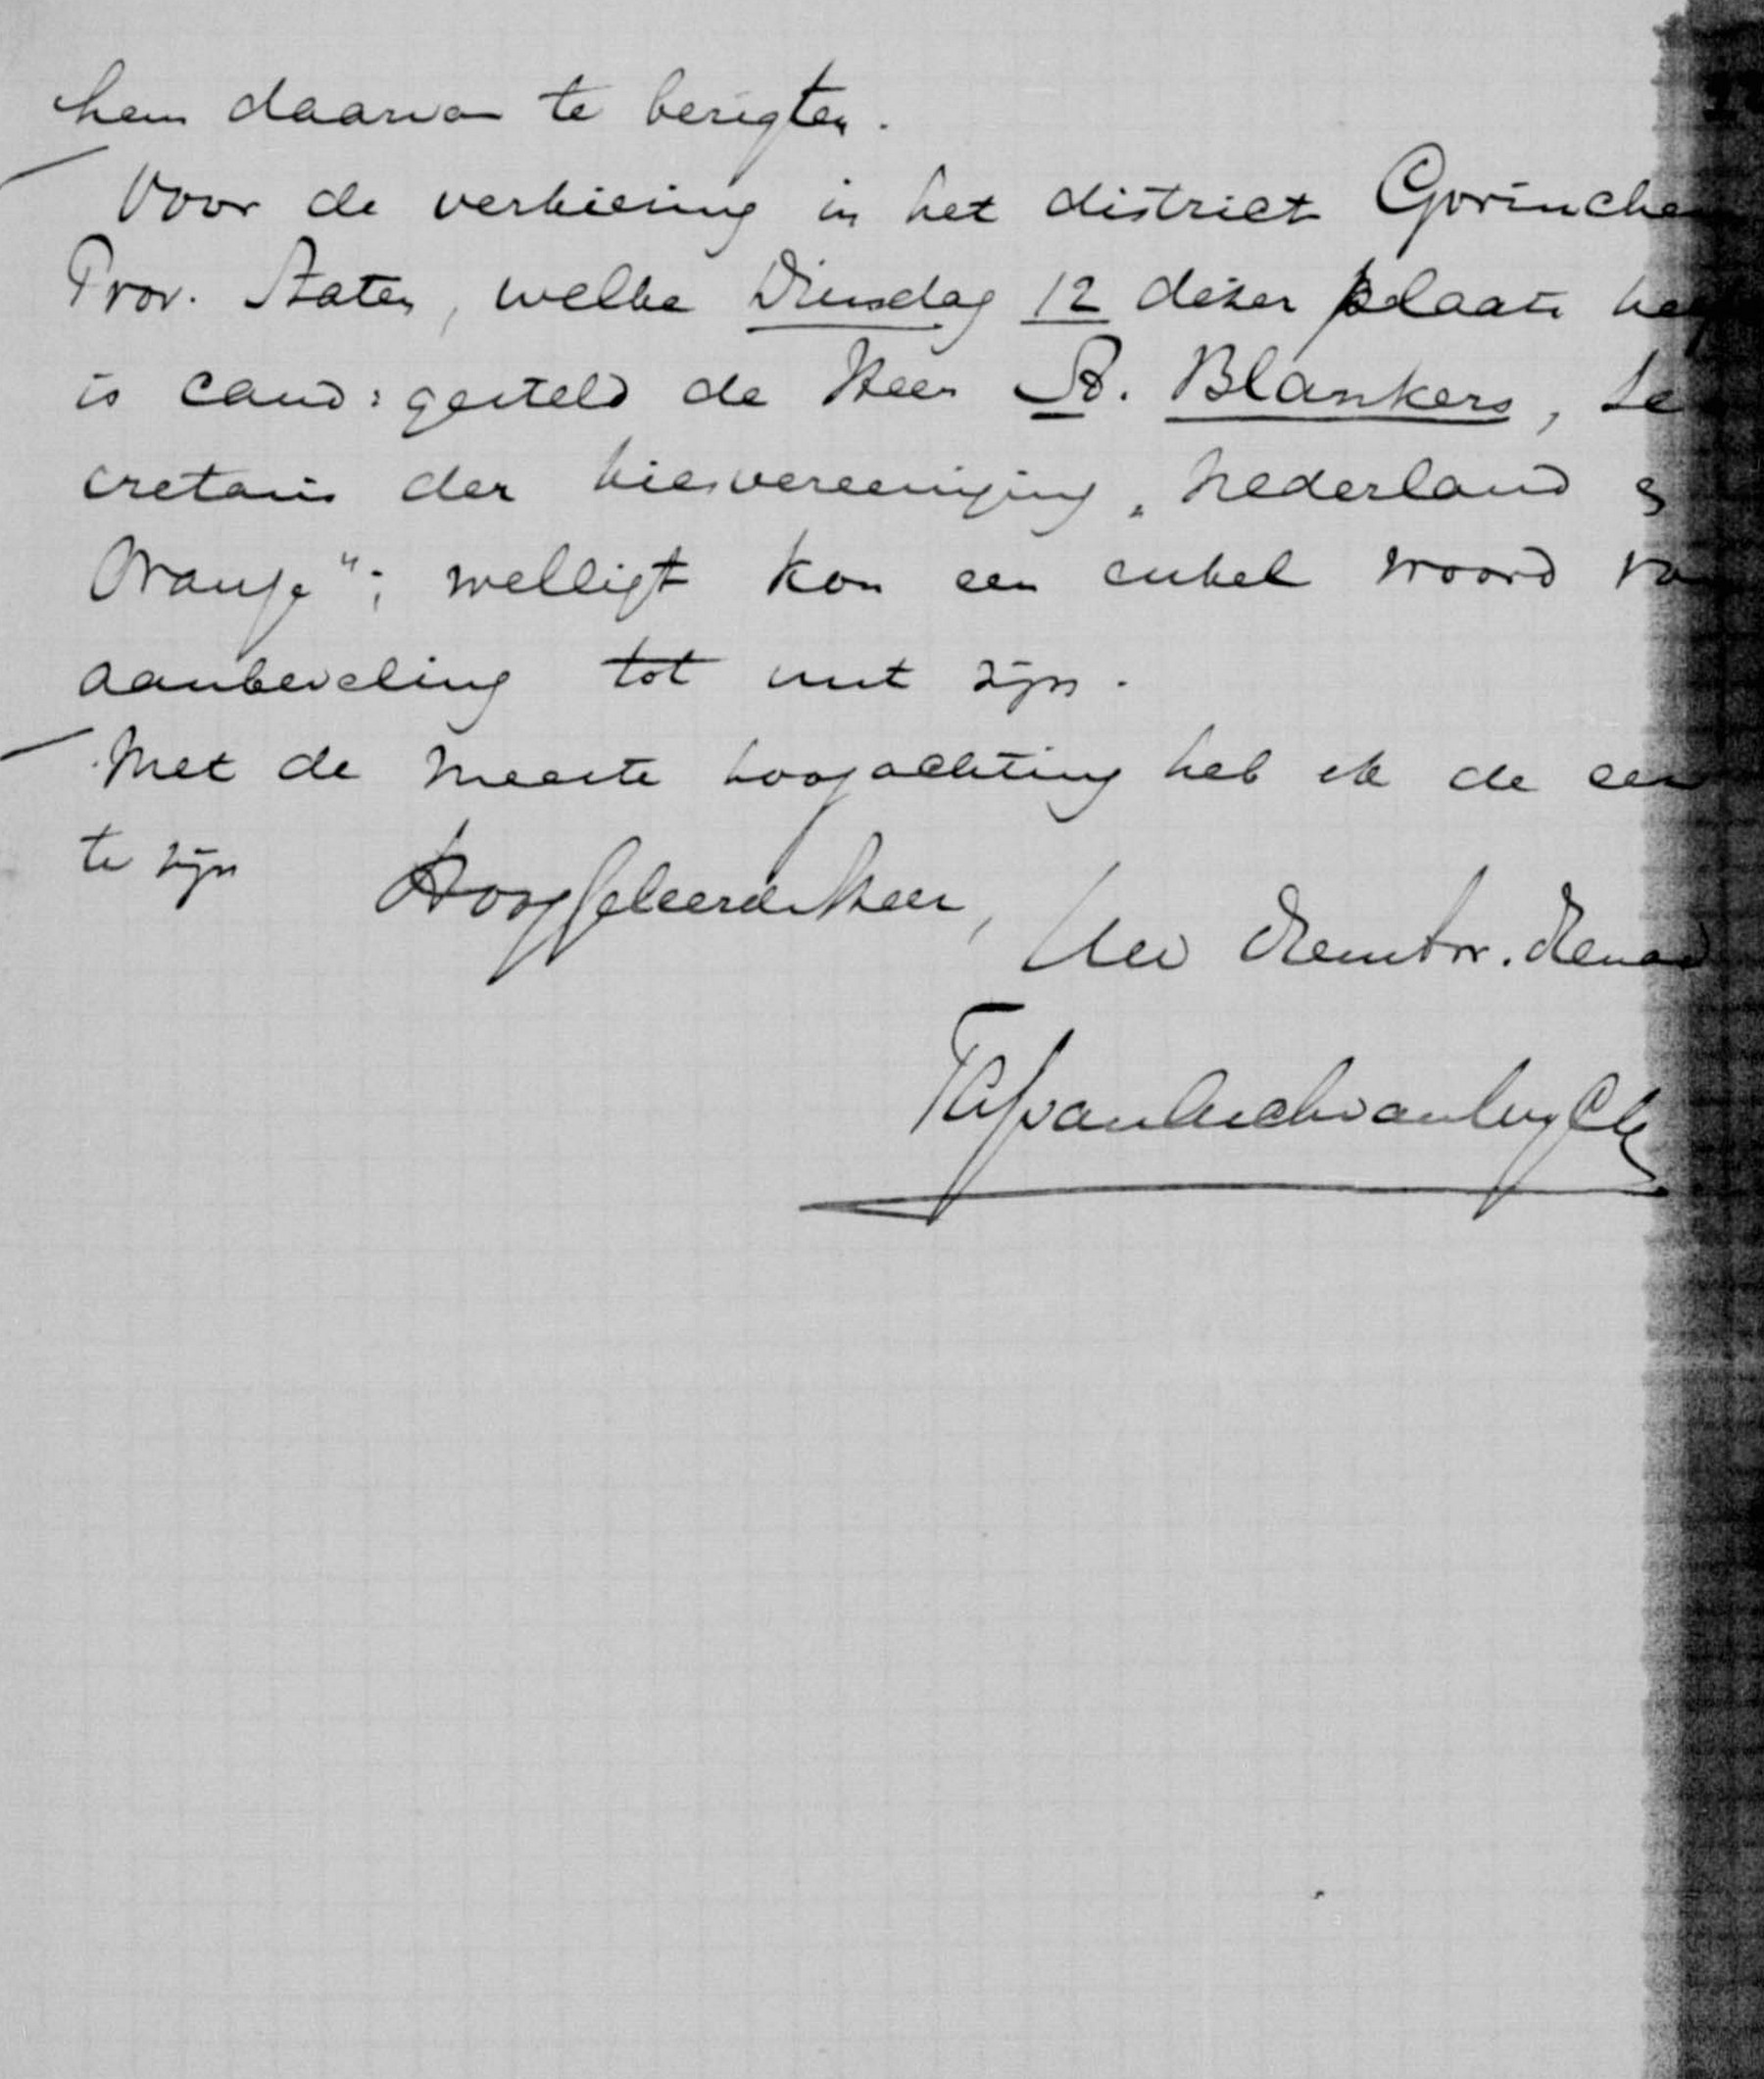 hem daarvan te berigten.
Voor de verkiezing in het district Gorinchem
Prov. Staten, welke Dinsdag 12 dezer plaats
is cand: gesteld de Heer A. Blankers, Se
cretaris der kiesvereeniging „Nederland &
Oranje"; welligt kon een enkel woord van
aanbeveling tot nut zijn.
Met de meeste hoogachting heb ik de eer
te zijn HoogGeleerde Heer,
Uw dienstw. dienaar